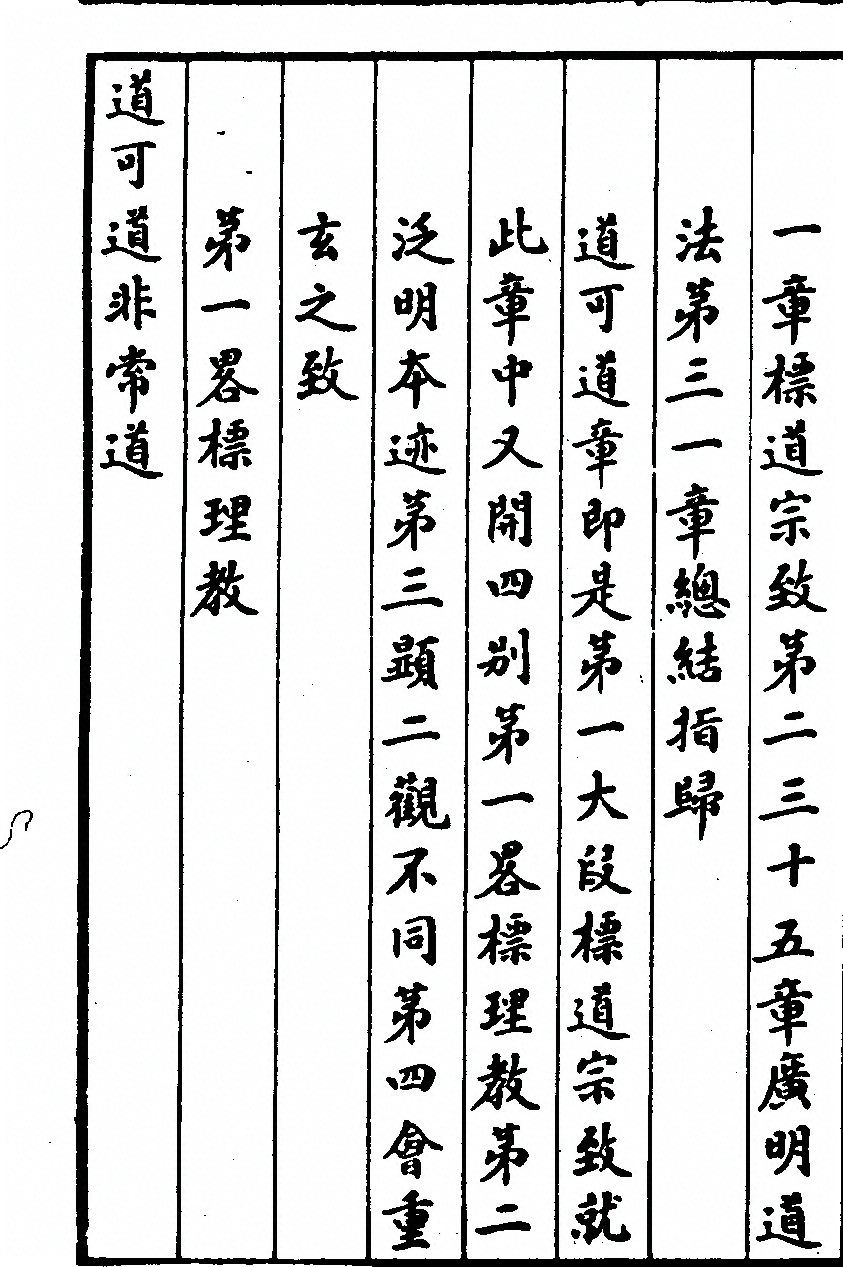 一章標道宗致第二三十五章廣明道
法第三一章總結指歸
道可道章即是第一大段標道宗致就
此章中又開四別第一畧標理教第二
泛明本迹第三顕二觀不同第四會重
玄之致
第一畧標理教
道可道非常道